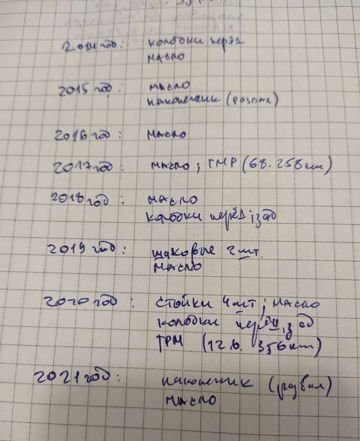 2014 год: колодки перед
масло
2015 год: масло
наконечник (развал)
2016 год: масло
2017 год: масло; ГМР (68.258км)
2018 год: масло
колодки перёд; зад
2019 год: шаровые 2 шт.
масло
2020 год: стойки 4 шт; масло
колодки перёд, зад
ГРМ (126.356км)
2021 год: наконечник (развал)
масло